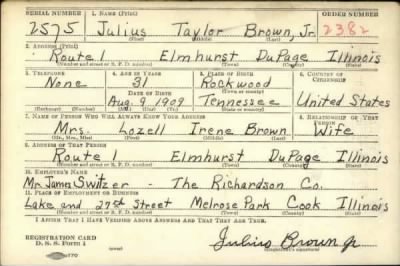 SERIAL NUMBER 1. NAME (Print) ORDER NUMBER
2575 Julius Taylor Brown, Jr. 2382
(First) (Middle) (Last)
2. ADDRESS (Print)
Route 1 Elmhurst DuPage Illinois
(Number and street or R. F. D. number) (Town) (County) (State)
3. TELEPHONE 4. AGE IN YEARS 5. PLACE OF BIRTH 6. COUNTRY OF CITIZENSHIP
None 31 Rockwood
DATE OF BIRTH (Town or county)
Aug. 9 1909 Tennessee United States
(Mo.) (Day) (Yr.) (State or country)
7. NAME OF PERSON WHO WILL ALWAYS KNOW YOUR ADDRESS 8. RELATIONSHIP OF THAT PERSON
Mrs. Lozell Irene Brown Wife
(Mr., Mrs., Miss) (First) (Middle) (Last)
9. ADDRESS OF THAT PERSON
Route 1 Elmhurst DuPage Illinois
(Number and street or R. F. D. number) (Town) (County) (State)
10. EMPLOYER'S NAME
Mr. James Switzer - The Richardson Co.
11. PLACE OF EMPLOYMENT OR BUSINESS
Lake and 27th Street Melrose Park Cook Illinois
(Number and street or R. F. D. number) (Town) (County) (State)
I AFFIRM THAT I HAVE VERIFIED ABOVE ANSWERS AND THAT THEY ARE TRUE.
REGISTRATION CARD
D. S. S. Form 1 Julius Brown Jr
(Registrant's signature)